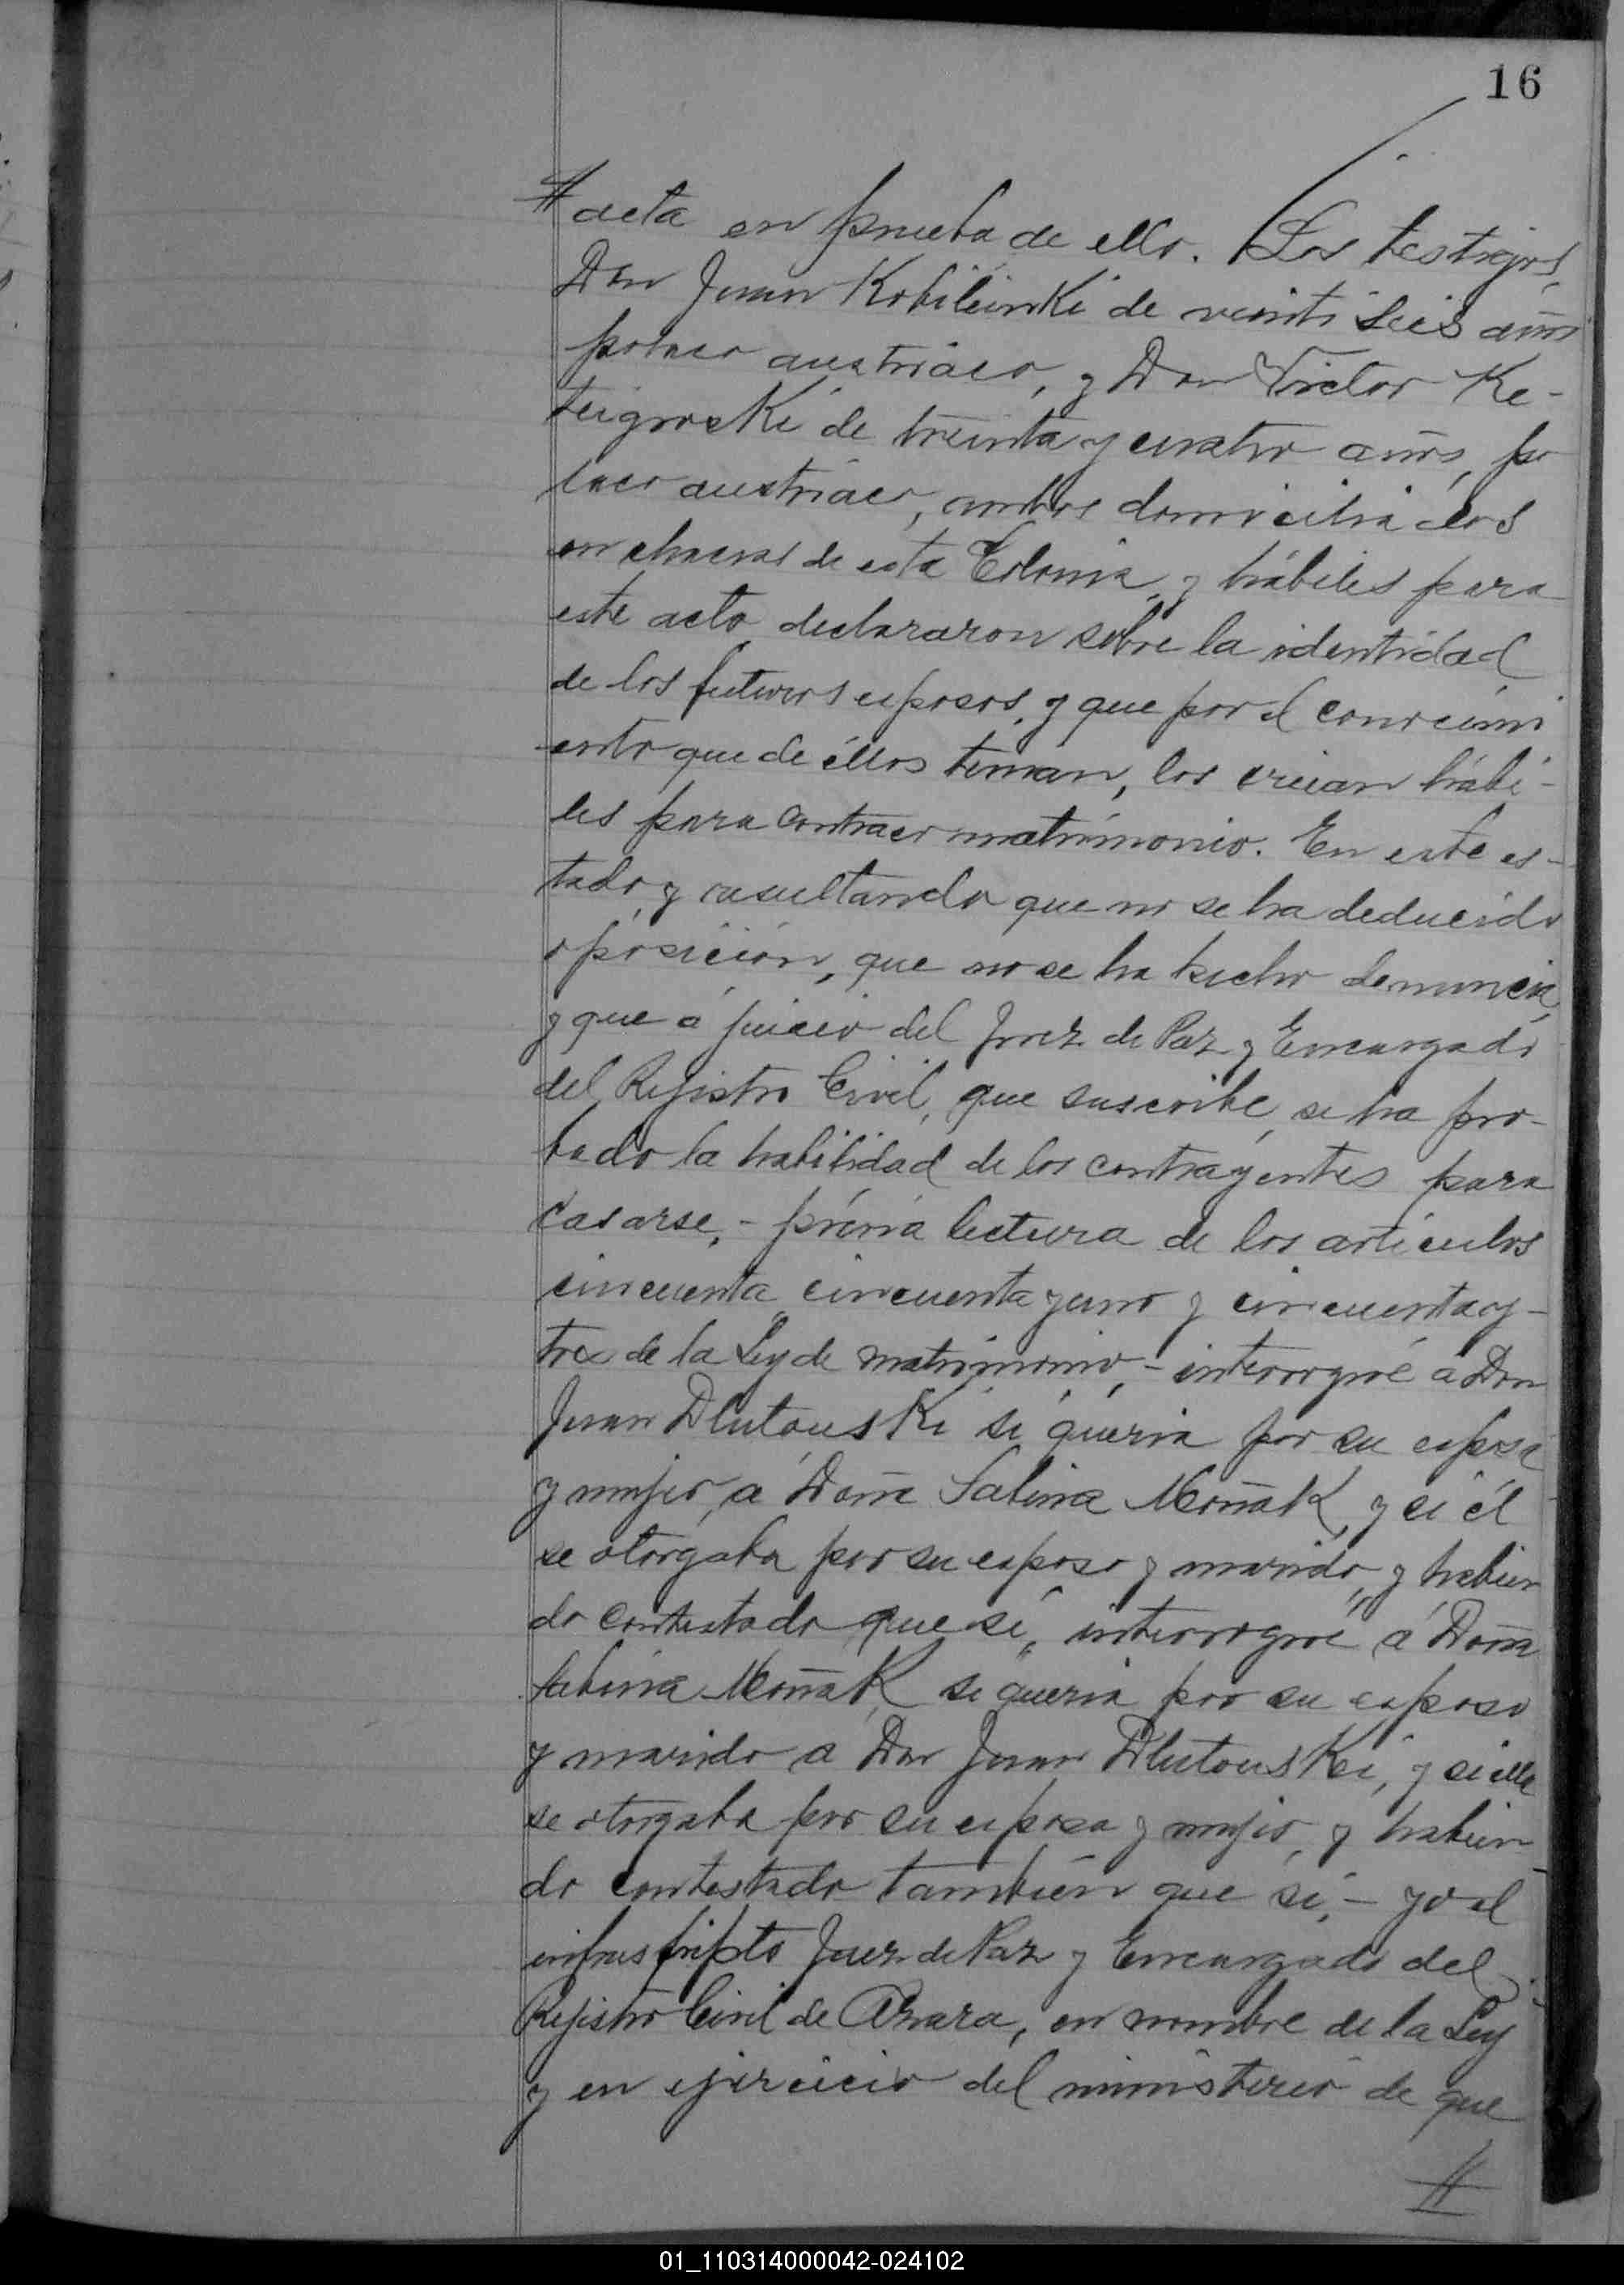 16
# acta en prueba de ello. Los testigos,
Don Juan Kobileinki de veinti seis años
polaco austriaco, y Don Victor Ke-
teignoski de treinta y cuatro años, po
laco austriaco, ambos domiciliados
en chacras de esta Colonia, y hábiles para
este acto, declararon sobre la identidad
de los futuros esposos, y que por el conocimi
ento que de éllos tenian, los creian habi-
les para contraer matrimonio. En este es-
tado, y resultando que no se ha deducido
oposición, que no se ha hecho denuncia,
y que á juicio del Juez de Paz y Encargado
del Rejistro Civil, que suscribe, se ha pro-
bado la habilidad de los contrayentes para
casarse, - prévia lectura de los articulos
cincuenta, cincuenta y uno y cincuenta y-
tres de la Ley de matrimonio, - interrogué á Don
Juan Dlutouski si queria por su esposa
y mujer, á Doña Sabina Moñak, y si él
se otorgaba por su esposo y marido, y habien
do contestado que sí, interrogué á Doña
Sabina Moñak, si queria por su esposo
y marido a Don Juan Dlutouski, y si ella
se otorgaba por su esposa y mujer, y habien-
do contestado también que sí, - yo el
infrascripto Juez de Paz y Encargado del
Rejistro Civil de Azara, en nombre de la Ley
y en ejercicio del ministerio de que
#
01_110314000042-024102